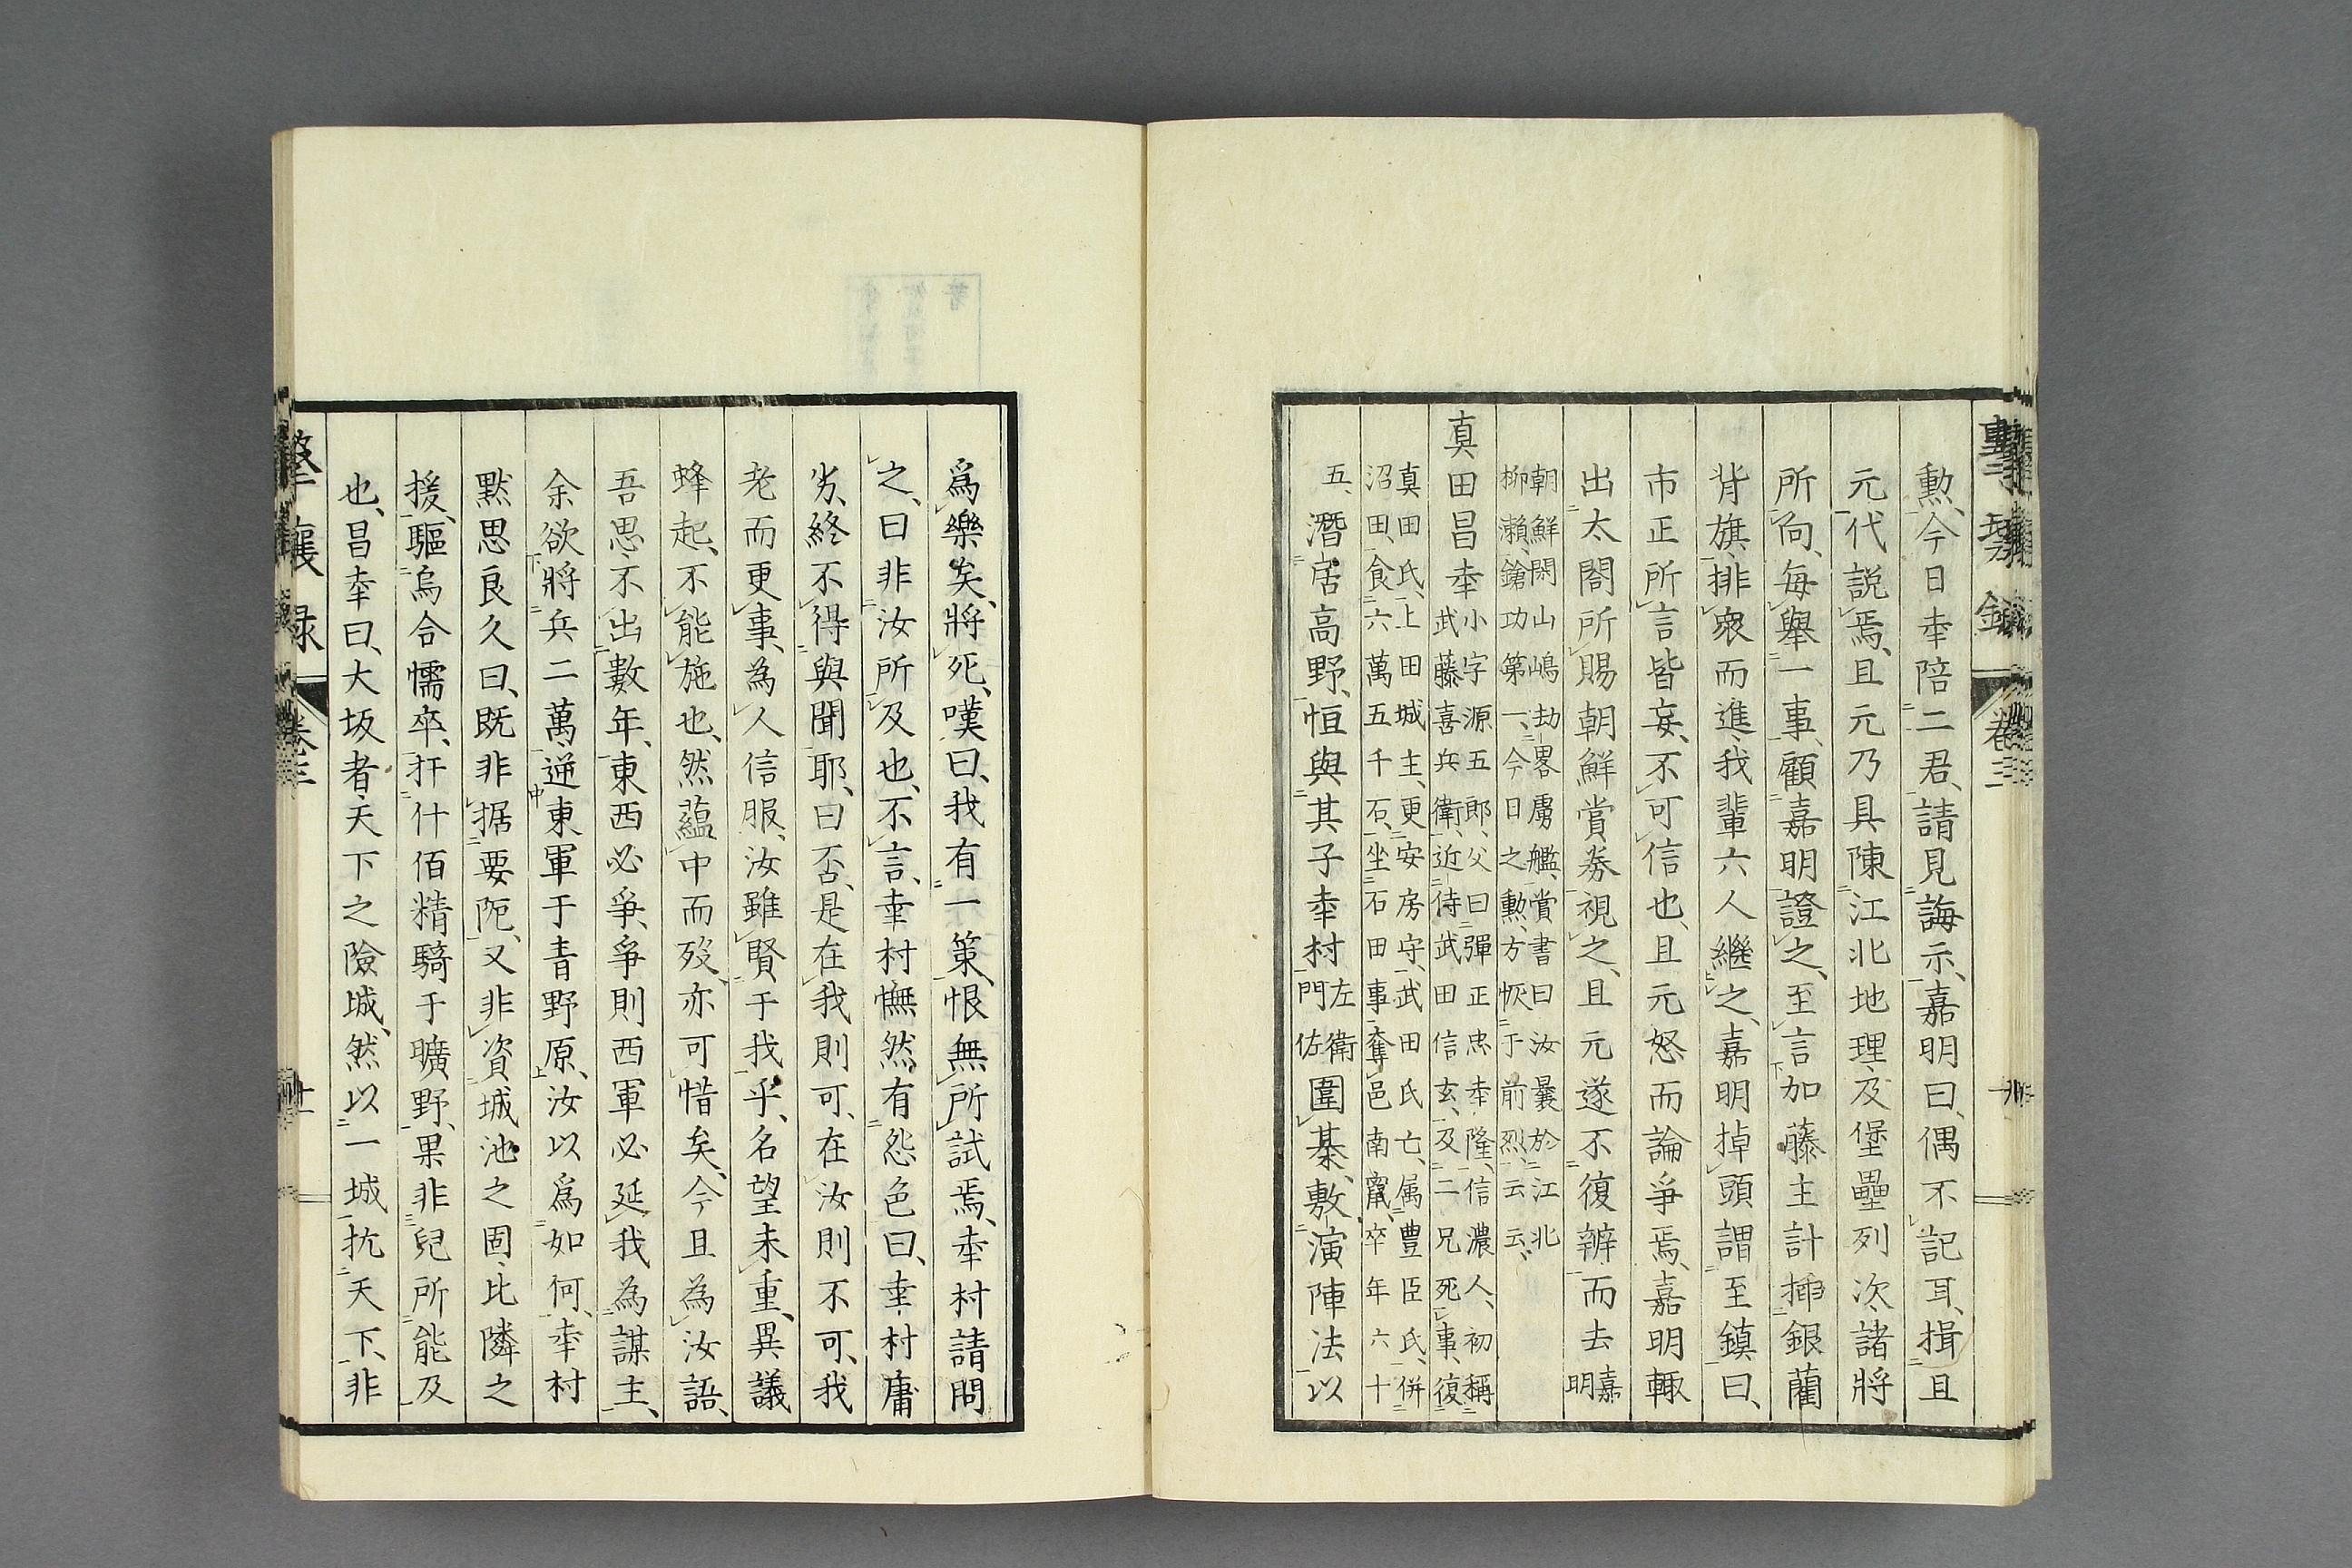 勲、今日幸陪二君、請見誨示、嘉明曰、偶不記耳、揖且
元代説焉、且元乃具陳江北地理、及堡壘列次、諸將
所向、毎舉一事、顧嘉明證之、至言加藤主計揷銀藺
背旗、排衆而進、我輩六人繼之、嘉明掉頭謂至鎮曰、
市正所言皆妄、不可信也、且元怒而論爭焉、嘉明輙
出太閤所賜朝鮮賞劵視之、且元遂不復辧而去嘉明
朝鮮閑山嶋劫畧虜艦、賞書曰汝曩於江北
柳瀬、鎗功第一、今日之勲、方恢于前烈、云云、
真田昌幸
小字源五郎、父曰彈正忠幸隆、信濃人、初稱
武藤喜兵衛、近侍武田信玄、及二兄死事、復
真田氏、上田城主、更安房守、武田氏亡、属豊臣氏、併
沼田、食六萬五千石、坐石田事、奪邑南竄、卒年六十
五、潛居高野、恒與其子幸村左衛門佐圍棊、敷演陣法以
卷三
爲樂矣、將死、嘆曰、我有一策、恨無所試焉、幸村請問
之、曰非汝所及也、不言、幸村憮然、有怨色曰、幸村庸
劣、終不得與聞耶、曰否、是在我則可、在汝則不可、我
老而更事、為人信服、汝雖賢于我乎、名望未重、異議
蜂起、不能施也、然蘊中而歿、亦可惜矣、今且為汝語、
吾思不出數年、東西必爭、爭則西軍必延我為謀主、
余欲將兵二萬、逆東軍于青野原、汝以爲如何、幸村
黙思良久曰、既非据要阨、又非資城池之固、比隣之
援、驅烏合懦卒、扞什佰精騎于曠野、果非兒所能及
也、昌幸曰、大坂者、天下之險城、然以一城抗天下、非